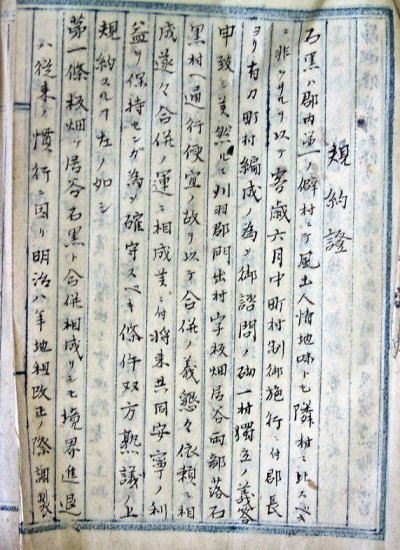 規約證
石黒ハ郡内第一ノ僻村ニテ風土人情地味トモ隣村ニ比スベキ
ニ非ラサルヲ以テ客歳六月中町村制御施行ニ付郡長
ヨリ有力町村編成ノ為メ御諮問ノ砌一村獨立ノ義答
申致シ候然ルニ刈羽郡門出村字板畑居谷両部落石
黒村ヘ通行便宜ノ故ヲ以テ合併ノ義懇々依頼ニ相
成遂々合併ノ運ニ相成候ニ付将来共同安寧ノ利
益ヲ保持センガ為メ確守スベキ條件双方熟議ノ上
規約スルヿ左ノ如シ
第一條板畑居谷石黒ト合併相成リシモ境界進退
ハ従来ノ慣行ニ因リ明治八年地租改正ノ際調製